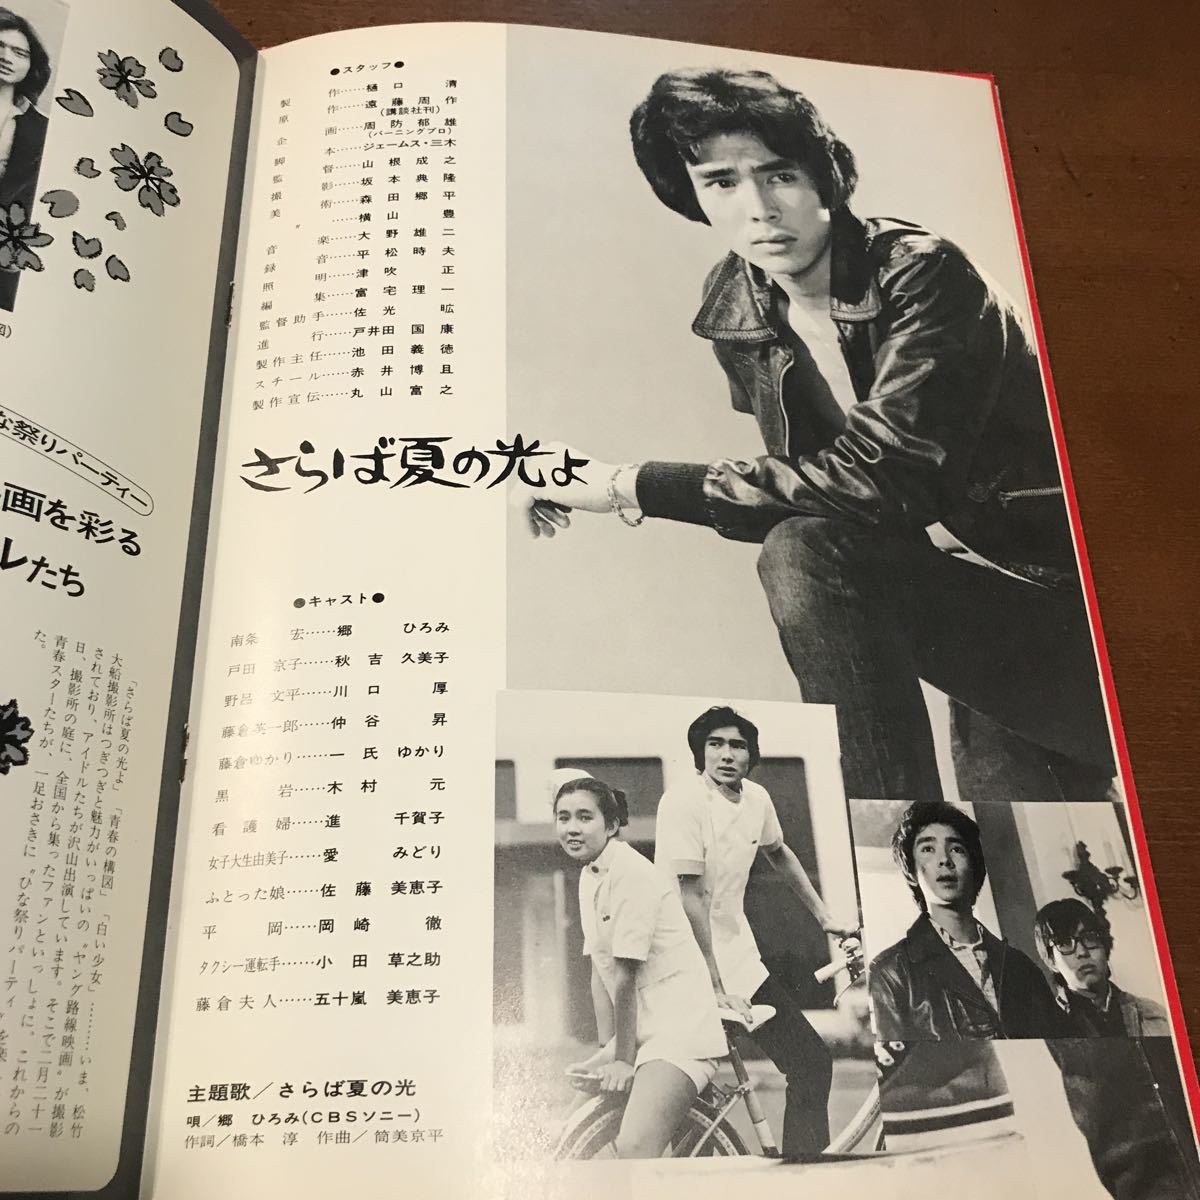 ●スタッフ●
製作……樋口 清
原作……遠藤周作
(講談社刊)
企画……周防郁雄
(バーニングプロ)
脚本……ジェームス・三木
監督……山根成之
撮影……坂本典隆
美術……森田郷平
〃……横山 豊
音楽……大野雄二
録音……平松時夫
照明……津吹 正
編集……富宅理一
監督助手……佐光 昿
進行……戸井田国康
製作主任……池田義徳
スチール……赤井博且
製作宣伝……丸山富之
さらば夏の光よ
●キャスト●
南条 宏……郷 ひろみ
戸田 京子……秋吉 久美子
野呂 文平……川口 厚
藤倉英一郎……仲谷 昇
藤倉ゆかり……一氏 ゆかり
黒岩……木村 元
看護婦……進 千賀子
女子大生由美子……愛 みどり
ふとった娘……佐藤 美恵子
平岡……岡崎 徹
タクシー運転手……小田 草之助
藤倉夫人……五十嵐 美恵子
主題歌/さらば夏の光
唄/郷 ひろみ(CBSソニー)
作詞/橋本 淳 作曲/筒美京平
な祭りパーティー
画を彩る
レたち
「さらば夏の光よ」「青春の構図」「白い少女」………いま、松竹
大船撮影所はつぎつぎと魅力がいっぱいの〝ヤング路線映画〟が撮影
されており、アイドルたちが沢山出演しています。そこで二月二十一
日、撮影所の庭に、全国から集ったファンといっしょに、これからの
青春スターたちが、一足おさきに〝ひな祭りパーティ〟を楽
た。